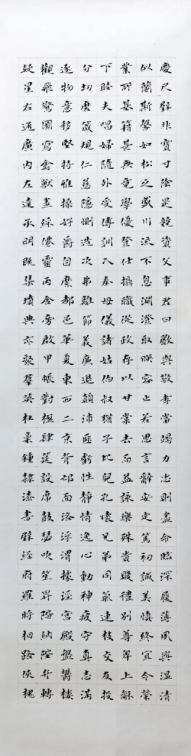 慶尺璧非寶寸陰是競資父事君曰嚴與敬孝當竭力忠則盡命臨深履薄夙興溫凊
似蘭斯馨如松之盛川流不息淵澄取映容止若思言辭安定篤初誠美慎終宜令榮
業所基籍甚無竟學優登仕攝職從政存以甘棠去而益詠樂殊貴賤禮別尊卑上和
下睦夫唱婦隨外受傅訓入奉母儀諸姑伯叔猶子比兒孔懷兄弟同氣連枝交友投
分切磨箴規仁慈隱惻造次弗離節義廉退顛沛匪虧性靜情逸心動神疲守真志滿
逐物意移堅持雅操好爵自縻都邑華夏東西二京背邙面洛浮渭據涇宮殿盤鬱樓
觀飛驚圖寫禽獸畫彩仙靈丙舍傍啟甲帳對楹肆筵設席鼓瑟吹笙升階納陛弁轉
疑星右通廣內左達承明既集墳典亦聚羣英杜稾鍾隸漆書壁經府羅將相路俠槐